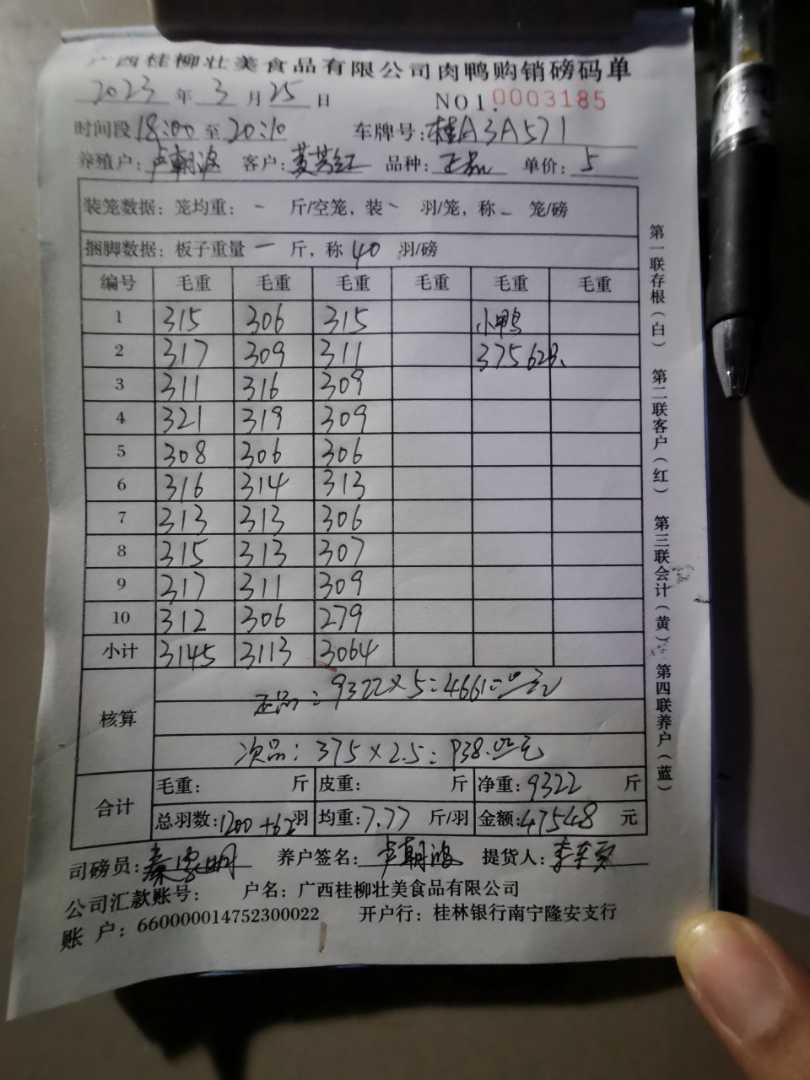 广西桂柳壮美食品有限公司肉鸭购销磅码单
2023 年 3 月 25 日 NO1. 0003185
时间段 18:00 至 20:10 车牌号: 桂A3A571
养殖户: 卢朝海 客户: 品种: 正品 单价: 5
装笼数据: 笼均重: - 斤/空笼, 装 - 羽/笼, 称 - 笼/磅
捆脚数据: 板子重量 - 斤, 称 40 羽/磅
编号 毛重 毛重 毛重 毛重 毛重 毛重
1 315 306 315 小鸭
2 317 309 311 375 62只
3 311 316 309
4 321 319 309
5 308 306 306
6 316 314 313
7 313 313 306
8 315 313 307
9 317 311 309
10 312 306 279
小计 3145 3113 3064
核算
正品: 9322×5=46610.00元
次品: 375×2.5=938.00元
合计
毛重: 斤 皮重: 斤 净重: 9322 斤
总羽数: 1200+62 羽 均重: 7.77 斤/羽 金额: 47548 元
司磅员: 养户签名: 卢朝海 提货人:
公司汇款账号: 户名: 广西桂柳壮美食品有限公司
账 户: 660000014752300022 开户行: 桂林银行南宁隆安支行
第一联存根(白) 第二联客户(红) 第三联会计(黄) 第四联养户(蓝)